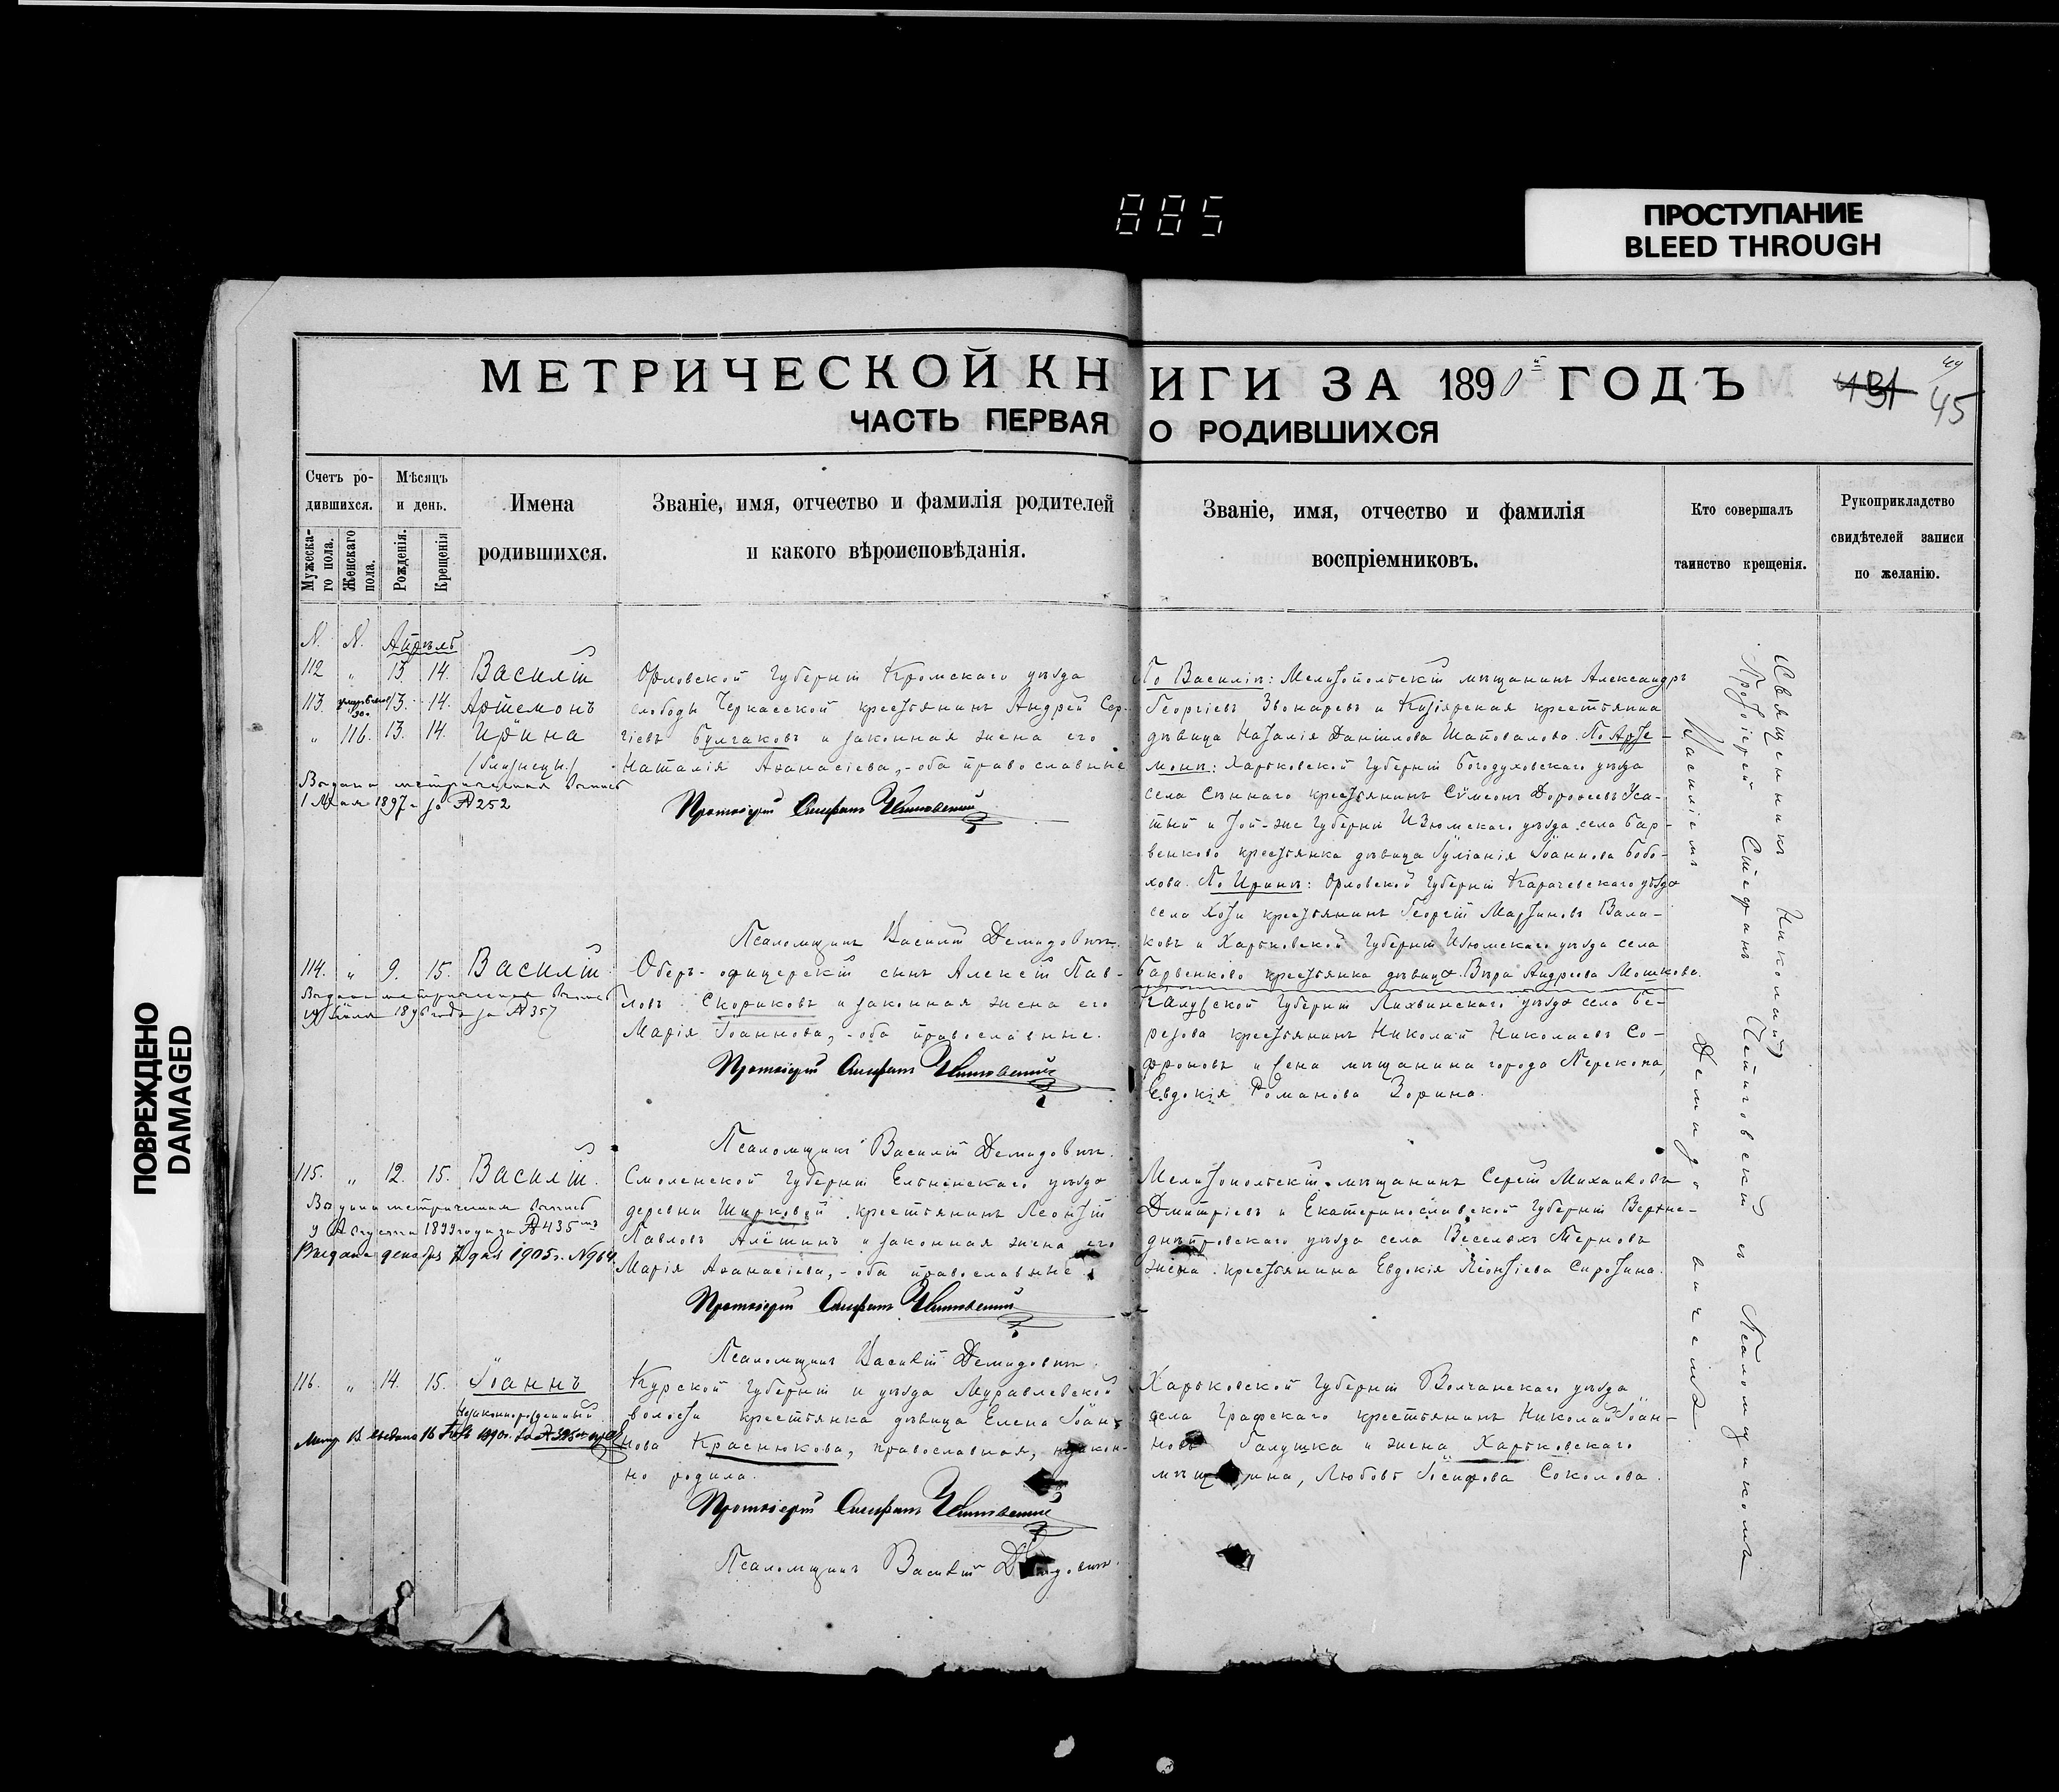 885
ПРОСТУПАНИЕ
BLEED THROUGH
ПОВРЕЖДЕНО
DAMAGED
МЕТРИЧЕСКОЙ КНИГИ ЗА 1890й ГОДЪ
45
ЧАСТЬ ПЕРВАЯ О РОДИВШИХСЯ
Счетъ ро-
дившихся.
Мужеска-
го пола.
Женскаго
пола.
Мѣсяцъ
и день.
Рожденія.
Крещенія
Имена
родившихся.
Званіе, имя, отчество и фамилія родителей
и какого вѣроисповѣданія.
Званіе, имя, отчество и фамилія
воспріемниковъ.
Кто совершалъ
таинство крещенія.
Рукоприкладство
свидѣтелей записи
по желанію.
N. N. Апрѣль
112 " 13. 14. Василій
113. 13. 14. Артемонъ
" 116. 13. 14. Ирина
/близнецы/
Выдана метрическая выпись
1 Мая 1897 г за № 252
Орловской Губерніи Кромскаго уѣзда
слободы Черкасской крестьянинъ Андрей Сер-
гіевъ Булгаковъ и законная жена его
Наталія Аѳанасіева, - оба православные
Протоіерей Стефанъ
Псаломщикъ Василій Демидовичъ.
По Василіѣ: Мелитопольскій мѣщанинъ Александръ
Георгіевъ Звонаревъ и крестьянка
дѣвица Наталія Даніилова Шаповалова. По Арте-
монѣ: Харьковской Губерніи Богодуховскаго уѣзда
села Сѣннаго крестьянинъ Сѵмеонъ Дороѳеевъ Уса-
тый и той-же Губерніи Изюмскаго уѣзда села Бар-
венково крестьянка дѣвица Іуліанія Іоаннова Бобо-
хова. По Иринѣ: Орловской Губерніи Карачевскаго уѣзда
села Хоты крестьянинъ Георгій Мартиновъ Вала-
ковъ и Харьковской Губерніи Изюмскаго уѣзда села
Барвенково крестьянка дѣвица Вѣра Андреева Мошкова.
114. " 9. 15. Василій
Выдана метрическая выпись
1896 года за № 357
Оберъ-офицерскій сынъ Алексѣй Пав-
ловъ Скориковъ и законная жена его
Марія Іоаннова, - оба православные.
Протоіерей Стефанъ
Псаломщикъ Василій Демидовичъ.
Калужской Губерніи Лихвинскаго уѣзда села Бе-
резова крестьянинъ Николай Николаевъ Со-
фроновъ и жена мѣщанина города Перекопа,
Евдокія Романова Зорина.
115. " 12. 15. Василій.
Выдана метрическая выпись
9 Августа 1899 года за № 435
Выдана декабря 7 дня 1905 г. N 964
Смоленской Губерніи Ельнинскаго уѣзда
деревни Ширковой крестьянинъ Леонтій
Павловъ Алёшинъ и законная жена его
Марія Аѳанасіева, - оба православные.
Протоіерей Стефанъ
Псаломщикъ Василій Демидовичъ.
Мелитопольскій мѣщанинъ Сергій Михаиловъ
Дмитріевъ и Екатеринославской Губерніи Верхне-
днѣпровскаго уѣзда села Веселыхъ Терновъ
жена крестьянина Евдокія Леонтіева Сиротина.
116. " 14. 15. Іоаннъ
Незаконнорожденный
Курской Губерніи и уѣзда Муравлевской
волости крестьянка дѣвица Елена Іоан-
нова Краснюкова, православная, незакон-
но родила.
Протоіерей Стефанъ
Псаломщикъ Василій Демидовичъ.
Харьковской Губерніи Волчанскаго уѣзда
села Графскаго крестьянинъ Николай Іоан-
новъ Галушка и жена Харьковскаго
мѣщанина, Любовь Іосифова Соколова.
Священникъ Николай
Протоіерей Стефанъ съ Псаломщикомъ
Василіемъ Демидовичемъ.